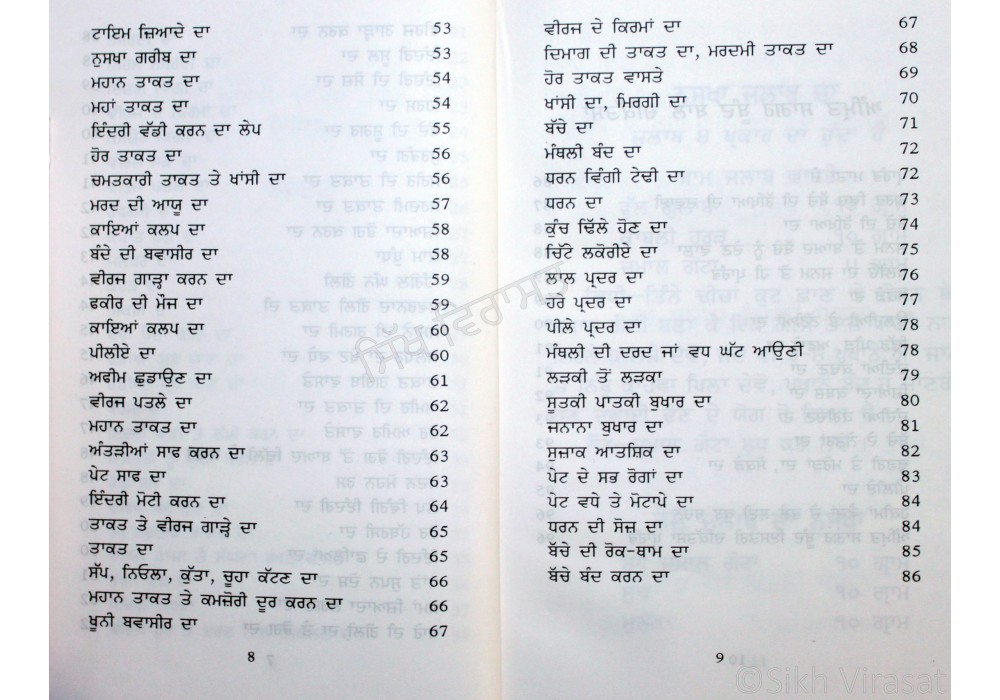 ਟਾਇਮ ਜ਼ਿਆਦੇ ਦਾ 53
ਨੁਸਖਾ ਗਰੀਬ ਦਾ 53
ਮਹਾਨ ਤਾਕਤ ਦਾ 54
ਮਹਾਂ ਤਾਕਤ ਦਾ 54
ਇੰਦਰੀ ਵੱਡੀ ਕਰਨ ਦਾ ਲੇਪ 55
ਹੋਰ ਤਾਕਤ ਦਾ 56
ਚਮਤਕਾਰੀ ਤਾਕਤ ਤੇ ਖਾਂਸੀ ਦਾ 56
ਮਰਦ ਦੀ ਆਯੂ ਦਾ 57
ਕਾਇਆਂ ਕਲਪ ਦਾ 58
ਬੰਦੇ ਦੀ ਬਵਾਸੀਰ ਦਾ 58
ਵੀਰਜ ਗਾੜ੍ਹਾ ਕਰਨ ਦਾ 59
ਫਕੀਰ ਦੀ ਮੌਜ ਦਾ 59
ਕਾਇਆਂ ਕਲਪ ਦਾ 60
ਪੀਲੀਏ ਦਾ 60
ਅਫੀਮ ਛੁਡਾਉਣ ਦਾ 61
ਵੀਰਜ ਪਤਲੇ ਦਾ 62
ਮਹਾਨ ਤਾਕਤ ਦਾ 62
ਅੰਤੜੀਆਂ ਸਾਫ ਕਰਨ ਦਾ 63
ਪੇਟ ਸਾਫ ਦਾ 63
ਇੰਦਰੀ ਮੋਟੀ ਕਰਨ ਦਾ 64
ਤਾਕਤ ਤੇ ਵੀਰਜ ਗਾੜ੍ਹੇ ਦਾ 65
ਤਾਕਤ ਦਾ 65
ਸੱਪ, ਨਿਓਲਾ, ਕੁੱਤਾ, ਚੂਹਾ ਕੱਟਣ ਦਾ 66
ਮਹਾਨ ਤਾਕਤ ਤੇ ਕਮਜ਼ੋਰੀ ਦੂਰ ਕਰਨ ਦਾ 66
ਖੂਨੀ ਬਵਾਸੀਰ ਦਾ 67
8
ਵੀਰਜ ਦੇ ਕਿਰਮਾਂ ਦਾ 67
ਦਿਮਾਗ ਦੀ ਤਾਕਤ ਦਾ, ਮਰਦਮੀ ਤਾਕਤ ਦਾ 68
ਹੋਰ ਤਾਕਤ ਵਾਸਤੇ 69
ਖਾਂਸੀ ਦਾ, ਮਿਰਗੀ ਦਾ 70
ਬੱਚੇ ਦਾ 71
ਮੰਥਲੀ ਬੰਦ ਦਾ 72
ਧਰਨ ਵਿੰਗੀ ਟੇਢੀ ਦਾ 72
ਧਰਨ ਦਾ 73
ਕੁੱਚ ਢਿੱਲੇ ਹੋਣ ਦਾ 74
ਚਿੱਟੇ ਲਕੋਰੀਏ ਦਾ 75
ਲਾਲ ਪ੍ਰਦਰ ਦਾ 76
ਹਰੇ ਪ੍ਰਦਰ ਦਾ 77
ਪੀਲੇ ਪ੍ਰਦਰ ਦਾ 78
ਮੰਥਲੀ ਦੀ ਦਰਦ ਜਾਂ ਵਧ ਘੱਟ ਆਉਣੀ 78
ਲੜਕੀ ਤੋਂ ਲੜਕਾ 79
ਸੂਤਕੀ ਪਾਤਕੀ ਬੁਖਾਰ ਦਾ 80
ਜਨਾਨਾ ਬੁਖਾਰ ਦਾ 81
ਸੁਜ਼ਾਕ ਆਤਸ਼ਿਕ ਦਾ 82
ਪੇਟ ਦੇ ਸਭ ਰੋਗਾਂ ਦਾ 83
ਪੇਟ ਵਧੇ ਤੇ ਮੋਟਾਪੇ ਦਾ 84
ਧਰਨ ਦੀ ਸੋਜ਼ ਦਾ 84
ਬੱਚੇ ਦੀ ਰੋਕ-ਥਾਮ ਦਾ 85
ਬੱਚੇ ਬੰਦ ਕਰਨ ਦਾ 86
9
ਸਿੱਖ ਵਿਰਾਸਤ
©Sikh Virasat